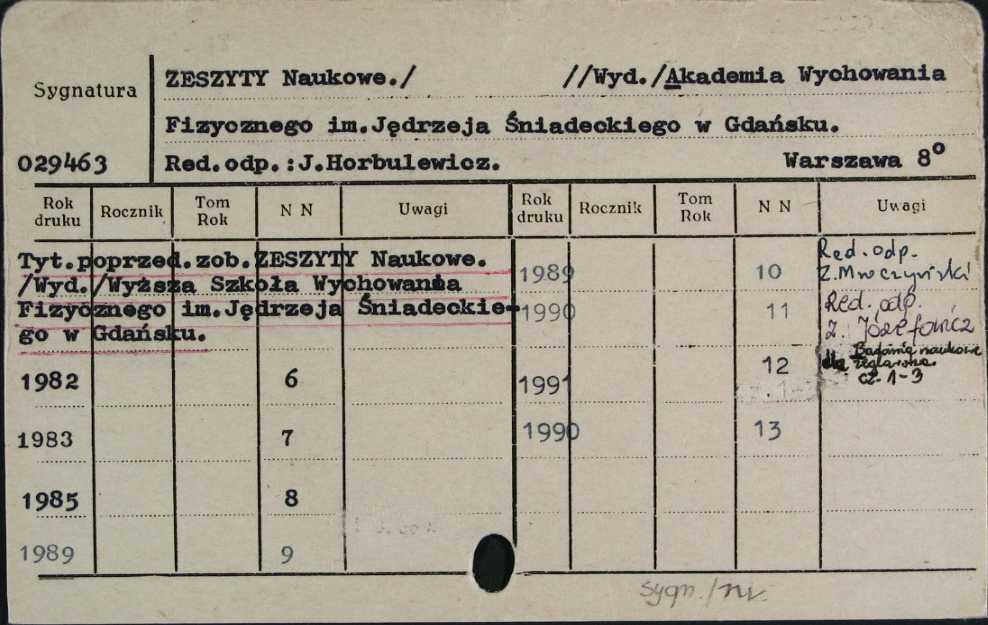 ZESZYTY Naukowe./ //Wyd./Akademia Wychowania
Sygnatura
Fizycznego im.Jędrzeja Śniadeckiego w Gdańsku.
029463 Red.odp.:J.Horbulewicz. Warszawa 8°
Rok druku Rocznik Tom Rok N N Uwagi Rok druku Rocznik Tom Rok N N Uwagi
Tyt.poprzed.zob.ZESZYTY Naukowe.
/Wyd./Wyższa Szkoła Wychowania
Fizycznego im.Jędrzeja Śniadeckie-
go w Gdańsku.
1982 6
1983 7
1985 8
1989 9
1989 10 Red. odp.
Z. Mroczyński
1990 11 Red. odp.
Z. Józefowicz
1991 12 Badania naukowe
dla żeglarstwa
cz. 1-3
1990 13
sygn./nv.